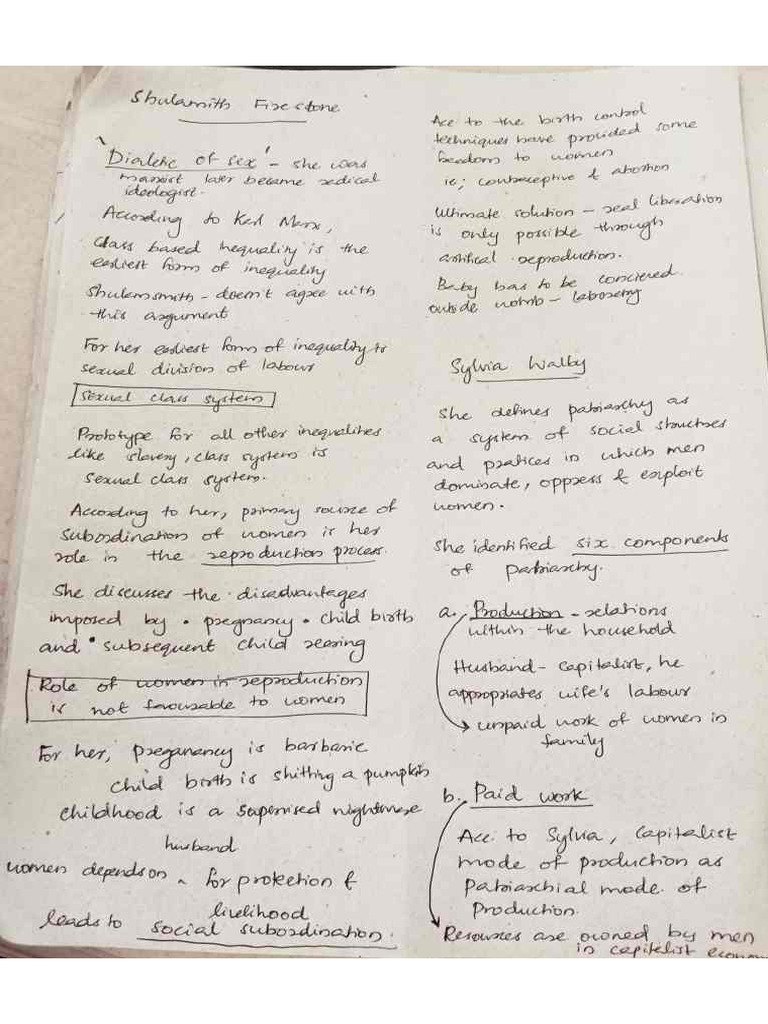 Shulamith Firestone
'Dialetic of sex' - she was
marxist later became redical
ideologist.
According to Karl Marx,
Class based inequality is the
earliest form of inequality
Shulamsmith - doesn't agree with
this argument
For her earliest form of inequality is
sexual division of labour
Sexual class system
Prototype for all other inequalities
like slavery, class system is
sexual class system.
According to her, primary source of
subordination of women is her
role in the reproduction process.
She discusses the disadvantages
imposed by • pregnancy • child birth
and • subsequent child rearing
Role of women in reproduction
is not favourable to women
For her, preganancy is barbaric
child birth is shitting a pumpkin
childhood is a supervised nightmare
husband
women depends on ^ for protection &
livelihood
leads to social subordination.
Acc to the birth control
techniques have provided some
freedom to women
ie; contraceptive & abortion
Ultimate solution - real liberation
is only possible through
artifical reproduction.
Baby has to be concieved
outside womb - laboratory
Sylvia Walby
She defines patriarchy as
a system of social structures
and pratices in which men
dominate, oppress & exploit
women.
She identified six components
of patriarchy.
a. Production - relations
within the household
Husband - capitalist, he
appropriates wife's labour
unpaid work of women in
family
b. Paid work
Acc. to Sylvia, capitalist
mode of production as
Patriarchial mode of
Production.
Resources are owned by men
in capitalist